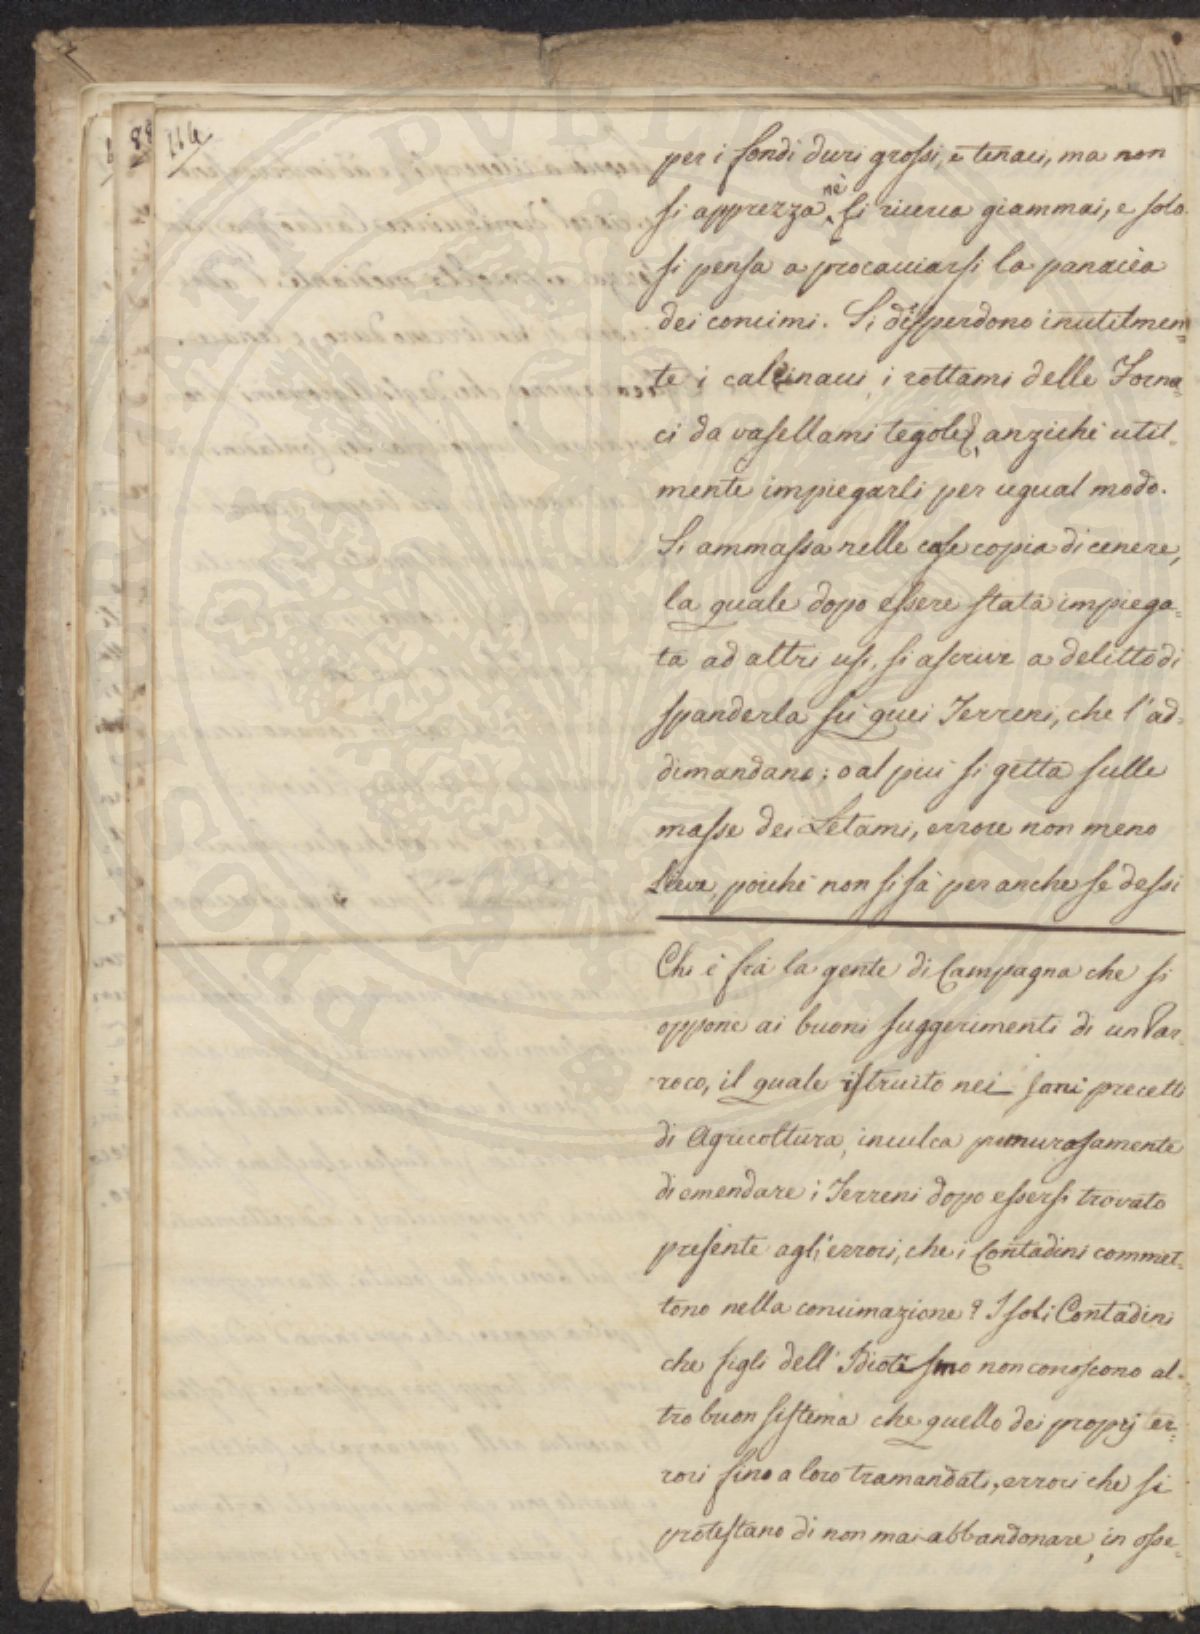 116
per i fondi duri grossi, e tenaci, ma non
si apprezza nè si ricerca giammai, e solo
si pensa a procacciarsi la panacèa
dei concimi. Si disperdono inutilmen=
te i calcinacci, i rottami delle Forna=
ci da vasellami tegole, anzichè util=
mente impiegarli per ugual modo.
Si ammassa nelle case copia di cenere,
la quale dopo essere stata impiega=
ta ad altri usi, si ascrive a delitto di
spanderla su quei Terreni, che l'ad=
dimandano; o al più si getta sulle
masse dei Letami, errore non meno
lieve, poichè non si sà per anche se dessi
Chi è frà la gente di Campagna che si
oppone ai buoni suggerimenti di un Par=
roco, il quale istruito nei sani precetti
di Agricoltura, inculca premurosamente
di emendare i Terreni dopo essersi trovato
presente agli errori, che i Contadini commet=
tono nella concimazione? I soli Contadini
che figli dell'Idiotismo non conoscono al=
tro buon sistema che quello dei proprj er=
rori fino a loro tramandati, errori che si
protestano di non mai abbandonare, in osse=
PVBLICA